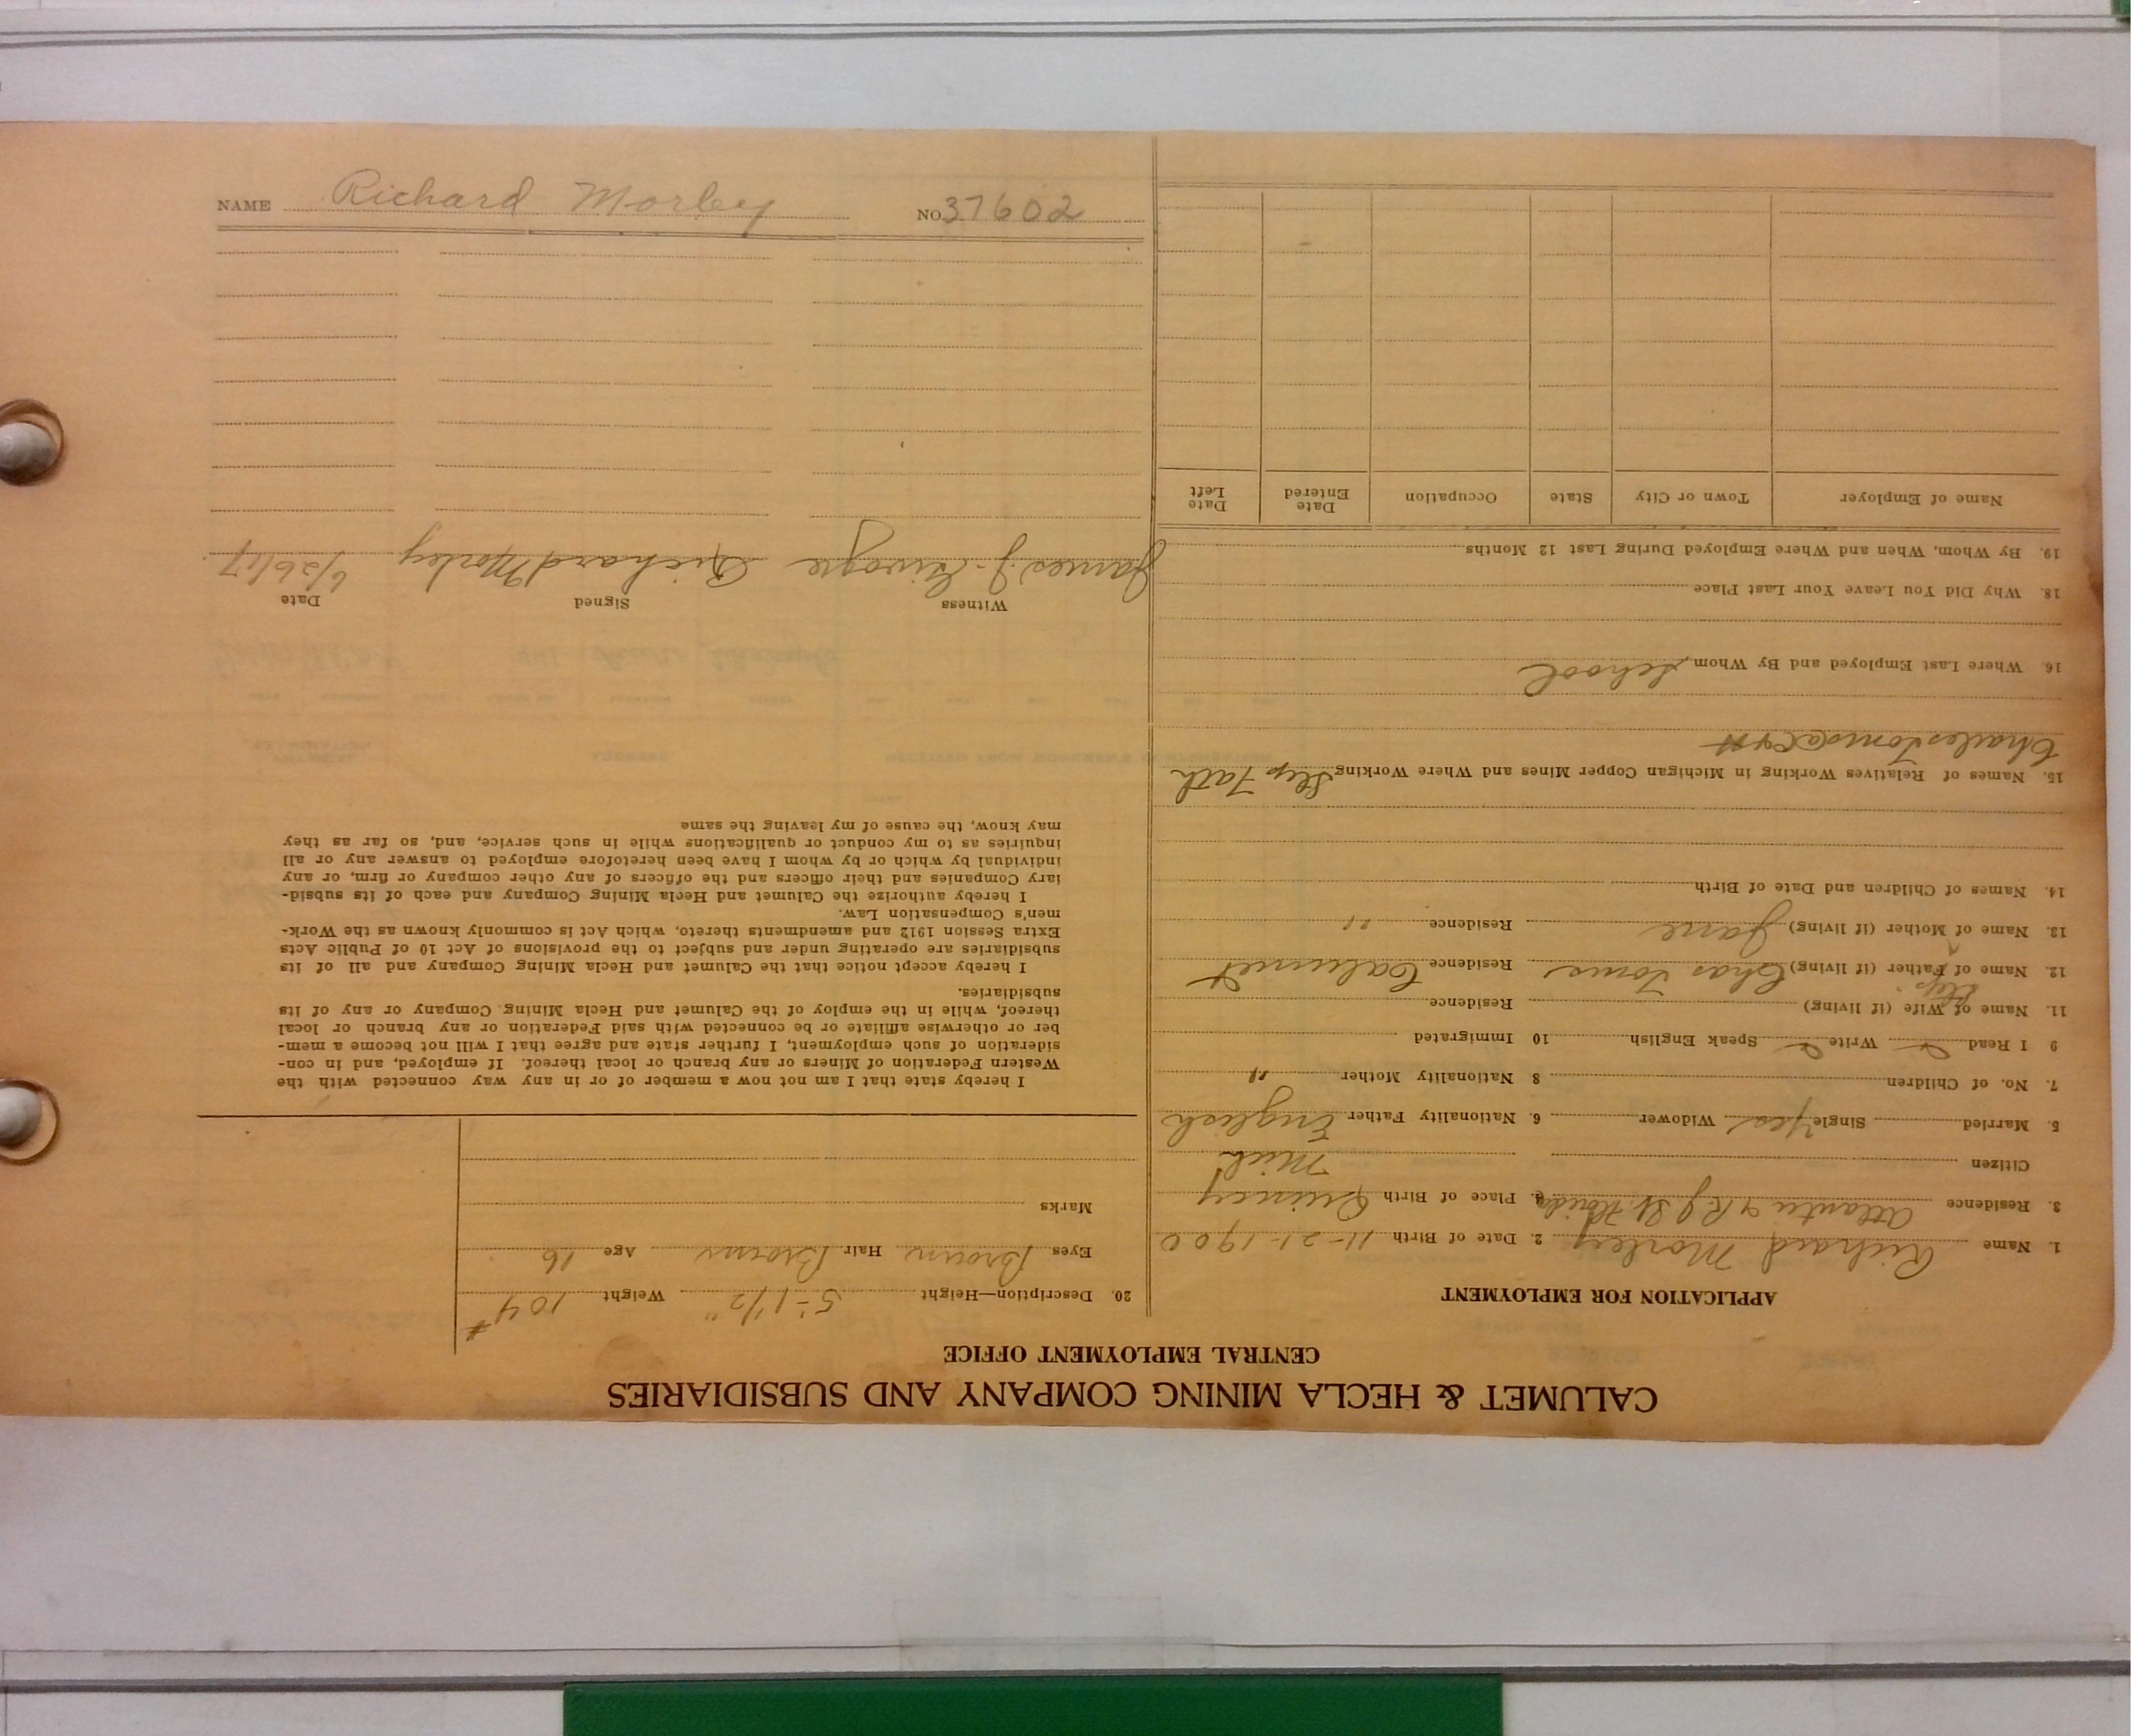 CALUMET & HECLA MINING COMPANY AND SUBSIDIARIES
CENTRAL EMPLOYMENT OFFICE
APPLICATION FOR EMPLOYMENT
1. Name Richard Morley 2. Date of Birth 11-21-1900
3. Residence Atlantic & R J St Florida 4. Place of Birth Quincy
Citizen Mich
5. Married Single Yes Widower 6. Nationality Father English
7. No. of Children 8 Nationality Mother "
9 I Read Write Speak English 10 Immigrated
11. Name of Wife (if living) Residence
Step
12. Name of Father (if living) Chas Toms Residence Calumet
13. Name of Mother (if living) Jane Residence "
14. Names of Children and Date of Birth
15. Names of Relatives Working in Michigan Copper Mines and Where Working Step Fath
Charles Toms @ C & H
16. Where Last Employed and By Whom School
18. Why Did You Leave Your Last Place
19. By Whom, When and Where Employed During Last 12 Months
Name of Employer Town or City State Occupation Date Entered Date Left
20. Description—Height 5'-1 1/2" Weight 104 #
Eyes Brown Hair Brown Age 16
Marks
I hereby state that I am not now a member of or in any way connected with the
Western Federation of Miners or any branch or local thereof. If employed, and in con-
sideration of such employment, I further state and agree that I will not become a mem-
ber or otherwise affiliate or be connected with said Federation or any branch or local
thereof, while in the employ of the Calumet and Hecla Mining Company or any of its
subsidiaries.
I hereby accept notice that the Calumet and Hecla Mining Company and all of its
subsidiaries are operating under and subject to the provisions of Act 10 of Public Acts
Extra Session 1912 and amendments thereto, which Act is commonly known as the Work-
men's Compensation Law.
I hereby authorize the Calumet and Hecla Mining Company and each of its subsid-
iary Companies and their officers and the officers of any other company or firm, or any
individual by which or by whom I have been heretofore employed to answer any or all
inquiries as to my conduct or qualifications while in such service, and, so far as they
may know, the cause of my leaving the same
Witness Signed Date
James J. Richard Morley 6/26/17
NAME Richard Morley NO. 37602